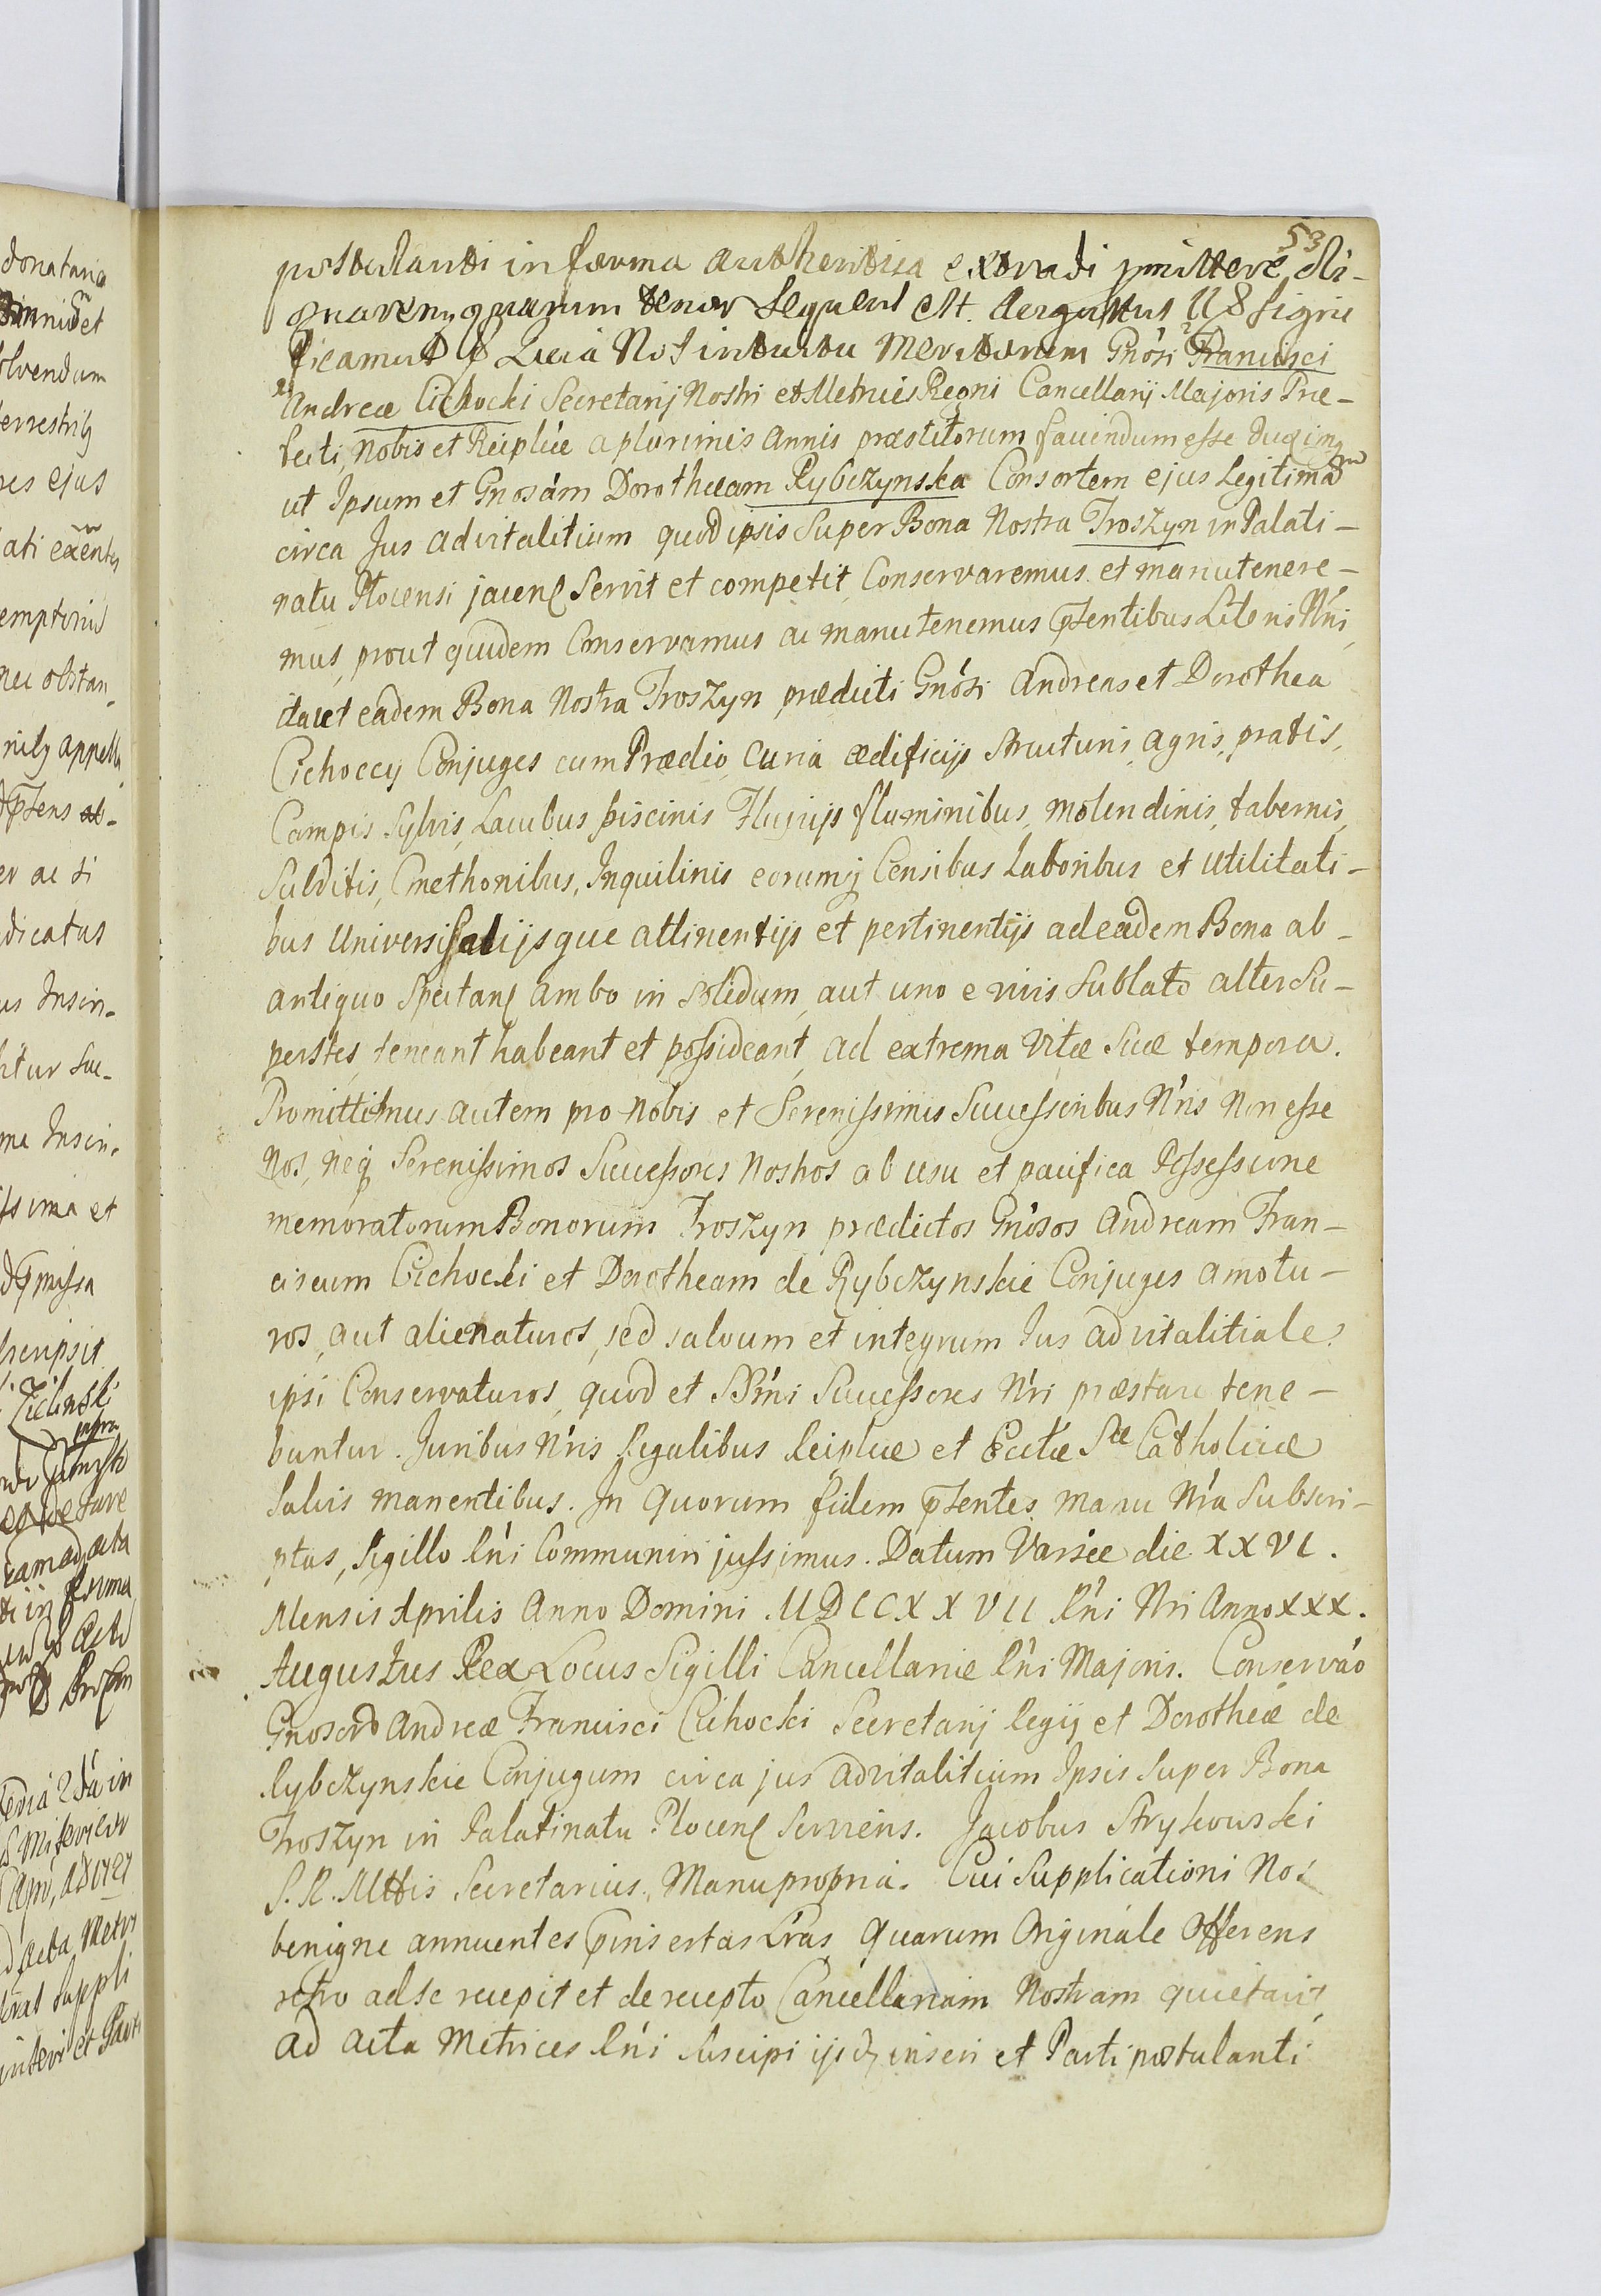 53
postulanti in forma authentica extradi permittere di-
gnaremur, quarum tenor sequens est. Augustus II & Signi-
ficamus &
Quia Nos intuitu Meritorum Gnósi Francisci
Andreæ Cichocki Secretarij Nostri et Metrices Regni Cancellarij Majoris Præ-
fecti, Nobis et Reiplícæ a plurimis annis præstitorum favendum esse duximus
ut Ipsum et Gnosám Dorotheam Rybczynska Consortem ejus Legitimam
circa Jus advitalitium quod ipsis super Bona Nostra Troszyn in Palati-
natu Plocensi jacen. servit et competit, Conservaremus et manutenere-
mus, prout quidem Conservamus ac manutenemus pñtentibus Literis Nŕis,
ita ut eadem Bona Nostra Troszyn prædicti Gnósi Andreas et Dorothea
Cichoccy Conjuges cum Prædio, Curia ædificijs structuris, agris, pratis,
Campis Sylvis, Lacubus piscinis Fluvijs fluminibus, molendinis, tabernis,
Subditis, Cmethonibus, Inquilinis eorumq Censibus Laboribus et Utilitati-
bus Universis alijsque attinentijs et pertinentijs ad eadem Bona ab-
antiquo Spectan. ambo in solidum, aut uno e vivis sublato alter su-
perstes, teneant habeant et possideant, ad extrema vitæ suæ tempora.
Promittimus autem pro Nobis et Serenissimis Successoribus Nŕis Non esse
Nos, neq Serenissimos Successores Nostros ab usu et pacifica Possessione
memoratorum Bonorum Troszyn prædictos Gnósos Andream Fran-
ciscum Cichocki et Dorotheam de Rybczynskie Conjuges amotu-
ros, aut alienaturos, sed salvum et integrum Jus advitalitiale
ipsi Conservaturos, quod et SSmi Successores Nŕi præstare tene-
buntur. Juribus Nŕis Regalibus Reiplicæ et Ecclæ Stæ Catholicæ
Salvis manentibus. In quorum fidem pñtentes manu Nŕa Subscri-
ptas, Sigillo Rńi Communiri jussimus. Datum Varsæ die XXVI.
Mensis Aprilis Anno Domini MDCCXXVII Rńi Nri Anno XXX.
Augustus Rex Locus Sigilli Cancellariæ Rńi Majoris. Conserváo
Gnosorum Andreæ Francisci Cichocki Secretarij Regij et Dorotheæ de
Rybczynskie Conjugum circa jus advitalitium Ipsis super Bona
Troszyn in Palatinatu Plocen. serviens. Jacobus Strykowski
S. R. Mttis Secretarius, Manu propria. Cui Supplicationi Nos
benigne annuentes pinsertas Lŕas quarum Originale Offerens
retro ad se recepit et de recepto Cancellariam Nostram quietavit,
ad acta Metrices Rńi suscipi ijsdq inseri et Parti postulanti